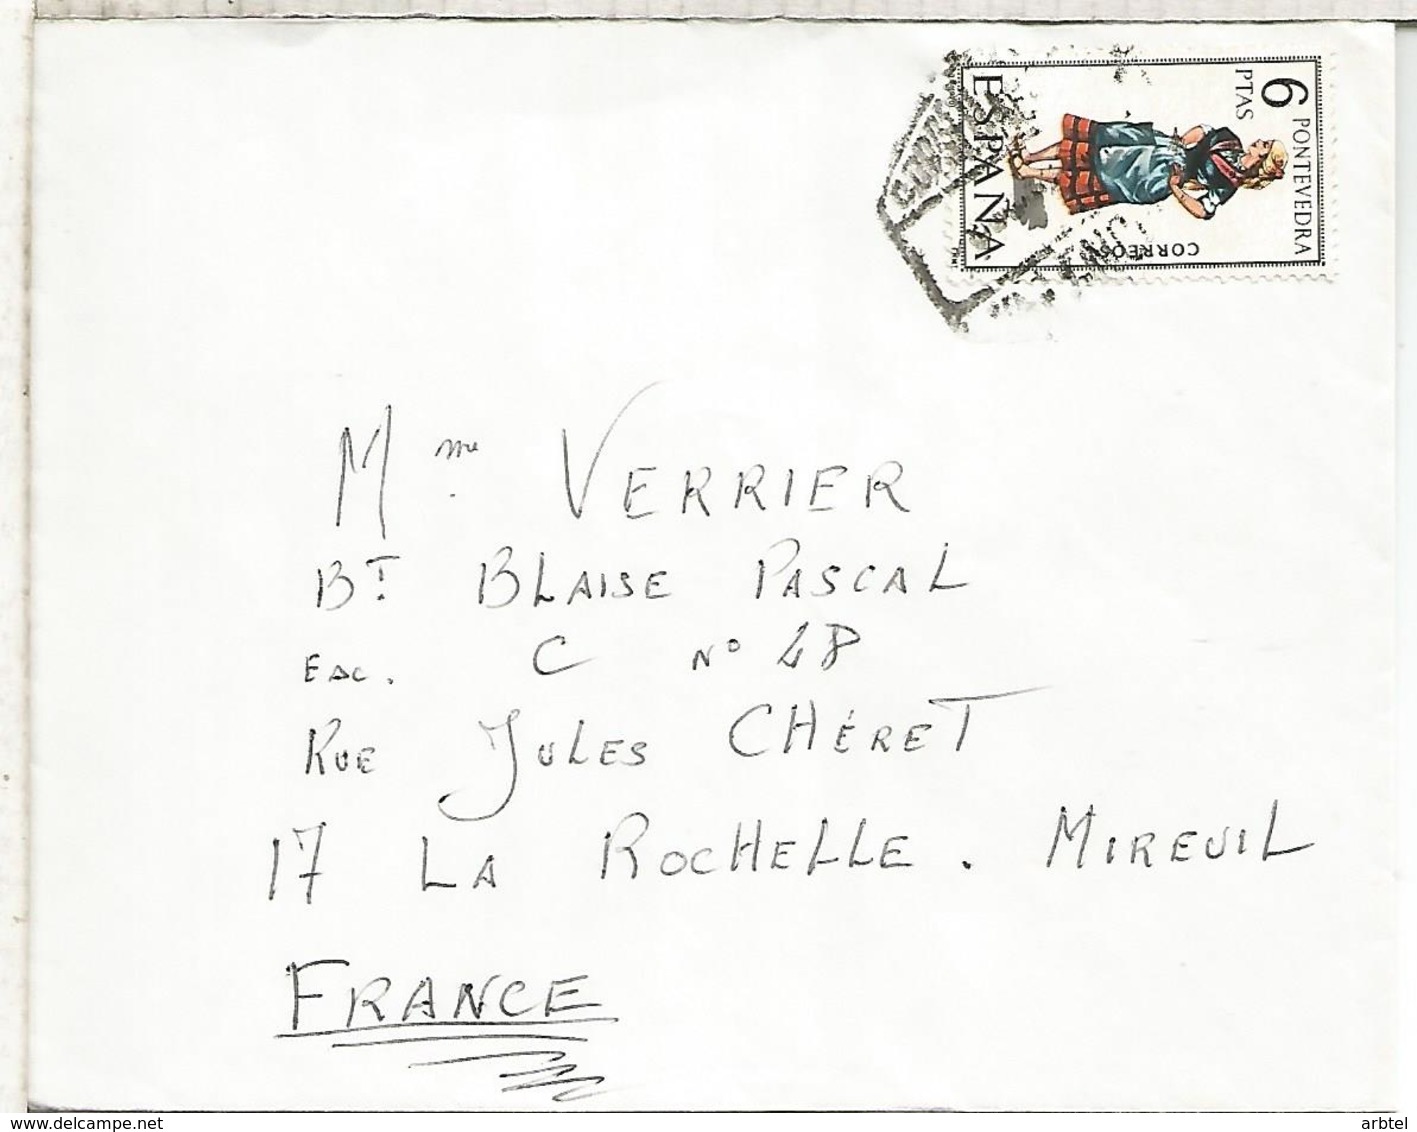 6 PTAS
PONTEVEDRA
CORREOS
ESPAÑA
Mme VERRIER
BT. BLAISE PASCAL
Esc. C N° 28
RUE JULES CHÉRET
17 LA ROCHELLE. MIREUIL
FRANCE
www.delcampe.net
arbtel